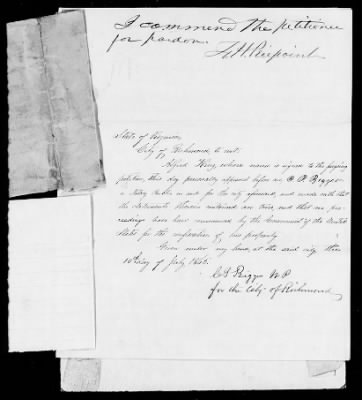 I commend the petitioner
for pardon.
F H Peirpoint
State of Virginia
City of Richmond to wit:
Alfred King, whose name is signed to the foregoing
petition, this day personally appeared before me
a Notary Public in and for the city aforesaid, and made oath that
the statements therein contained are true, and that no pro-
ceedings have been commenced by the Government of the United
States for the confiscation of his property.
Given under my hand, at the said city this
10th day of July 1865.
N P
for the City of Richmond